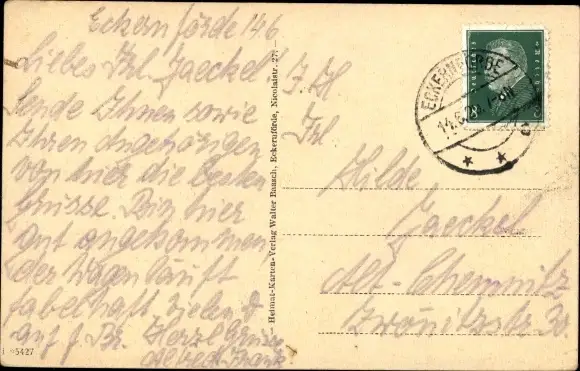 Eckernförde 146
Liebes Frl. Jaeckel!
Sende Ihnen sowie
Ihren Angehörigen
von hier die besten
Grüsse. Bin hier
gut angekommen,
der Wagen läuft
fabelhaft. Vielen
auf f. Br. Herzl. Grüsse
Alfred Frank
5427
Heimat-Karten-Verlag Walter Baasch, Eckernförde, Nicolaistr. 27.
ECKERNFÖRDE
Deutsches Reich
Frl
Hilde
Jaeckel
Alt-Chemnitz
Zwönitzstr. 30.